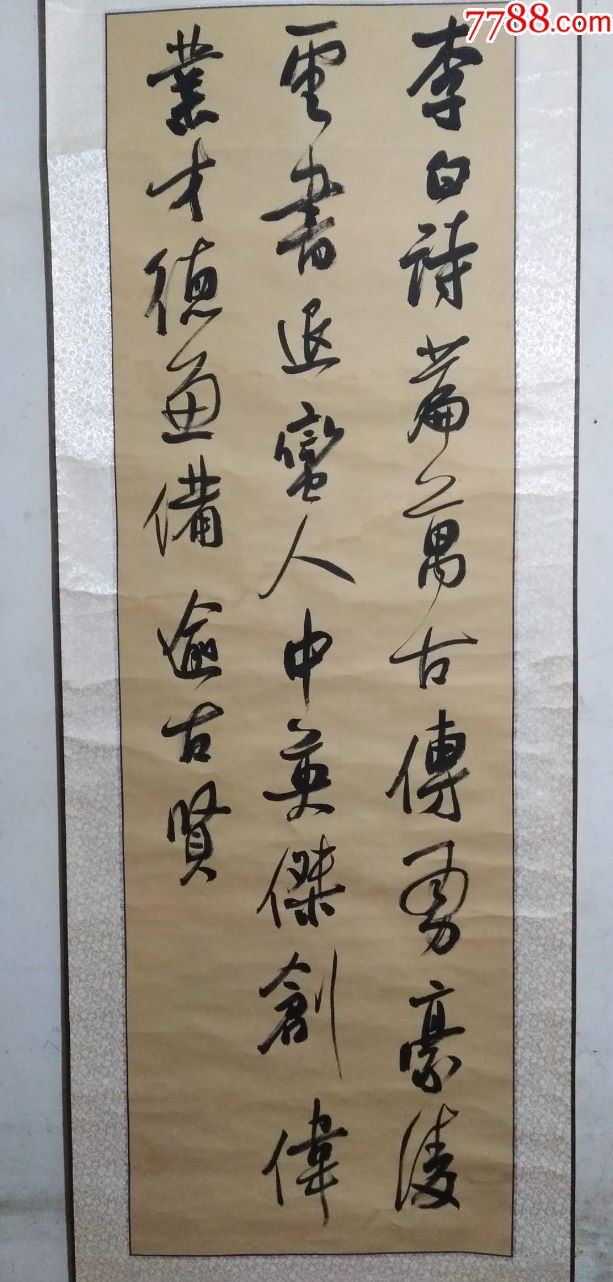 7788.com
李白詩篇萬古傳勇豪凌
雲書退蠻人中英傑創偉
業才德兼備逾古賢